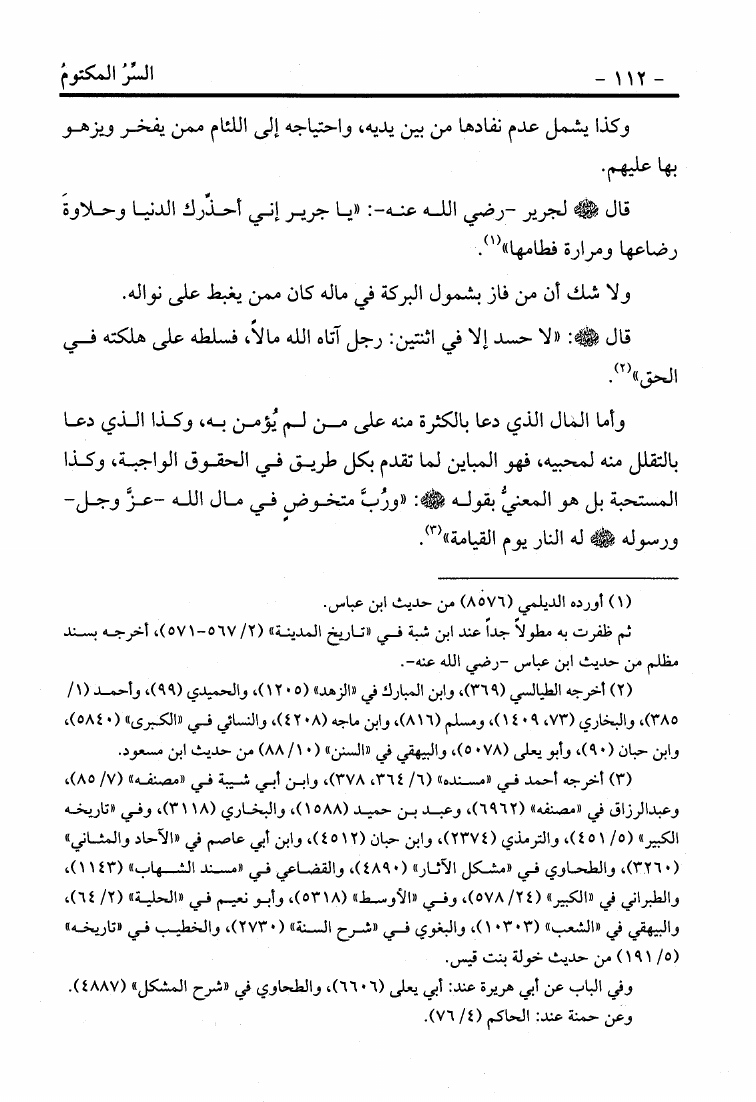 - ١١٢ -
السِّرُ المكتومُ
وكذا يشمل عدم نفادها من بين يديه، واحتياجه إلى اللئام ممن يفخر ويزهو
بها عليهم.
قال ﷺ لجرير -رضي الله عنه-: «يا جرير إني أحذّرك الدنيا وحلاوةَ
رضاعها ومرارة فطامها»(١).
ولا شك أن من فاز بشمول البركة في ماله كان ممن يغبط على نواله.
قال ﷺ: «لا حسد إلا في اثنتين: رجل آتاه الله مالاً، فسلطه على هلكته في
الحق»(٢).
وأما المال الذي دعا بالكثرة منه على من لم يُؤمن به، وكذا الذي دعا
بالتقلل منه لمحبيه، فهو المباين لما تقدم بكل طريق في الحقوق الواجبة، وكذا
المستحبة بل هو المعنيُّ بقوله ﷺ: «ورُبَّ متخوضٍ في مال الله -عزَّ وجل-
ورسوله ﷺ له النار يوم القيامة»(٣).
(١) أورده الديلمي (٨٥٧٦) من حديث ابن عباس.
ثم ظفرت به مطولاً جداً عند ابن شبة في «تاريخ المدينة» (٢/ ٥٦٧-٥٧١)، أخرجه بسند
مظلم من حديث ابن عباس -رضي الله عنه-.
(٢) أخرجه الطيالسي (٣٦٩)، وابن المبارك في «الزهد» (١٢٠٥)، والحميدي (٩٩)، وأحمد (١/
٣٨٥)، والبخاري (٧٣، ١٤٠٩)، ومسلم (٨١٦)، وابن ماجه (٤٢٠٨)، والنسائي في «الكبرى» (٥٨٤٠)،
وابن حبان (٩٠)، وأبو يعلى (٥٠٧٨)، والبيهقي في «السنن» (١٠/ ٨٨) من حديث ابن مسعود.
(٣) أخرجه أحمد في «مسنده» (٦/ ٣٦٤، ٣٧٨)، وابن أبي شيبة في «مصنفه» (٧/ ٨٥)،
وعبدالرزاق في «مصنفه» (٦٩٦٢)، وعبد بن حميد (١٥٨٨)، والبخاري (٣١١٨)، وفي «تاريخه
الكبير» (٥/ ٤٥١)، والترمذي (٢٣٧٤)، وابن حبان (٤٥١٢)، وابن أبي عاصم في «الآحاد والمثاني»
(٣٢٦٠)، والطحاوي في «مشكل الآثار» (٤٨٩٠)، والقضاعي في «مسند الشهاب» (١١٤٣)،
والطبراني في «الكبير» (٢٤/ ٥٧٨)، وفي «الأوسط» (٥٣١٨)، وأبو نعيم في «الحلية» (٢/ ٦٤)،
والبيهقي في «الشعب» (١٠٣٠٣)، والبغوي في «شرح السنة» (٢٧٣٠)، والخطيب في «تاريخه»
(٥/ ١٩١) من حديث خولة بنت قيس.
وفي الباب عن أبي هريرة عند: أبي يعلى (٦٦٠٦)، والطحاوي في «شرح المشكل» (٤٨٨٧).
وعن حمنة عند: الحاكم (٤/ ٧٦).